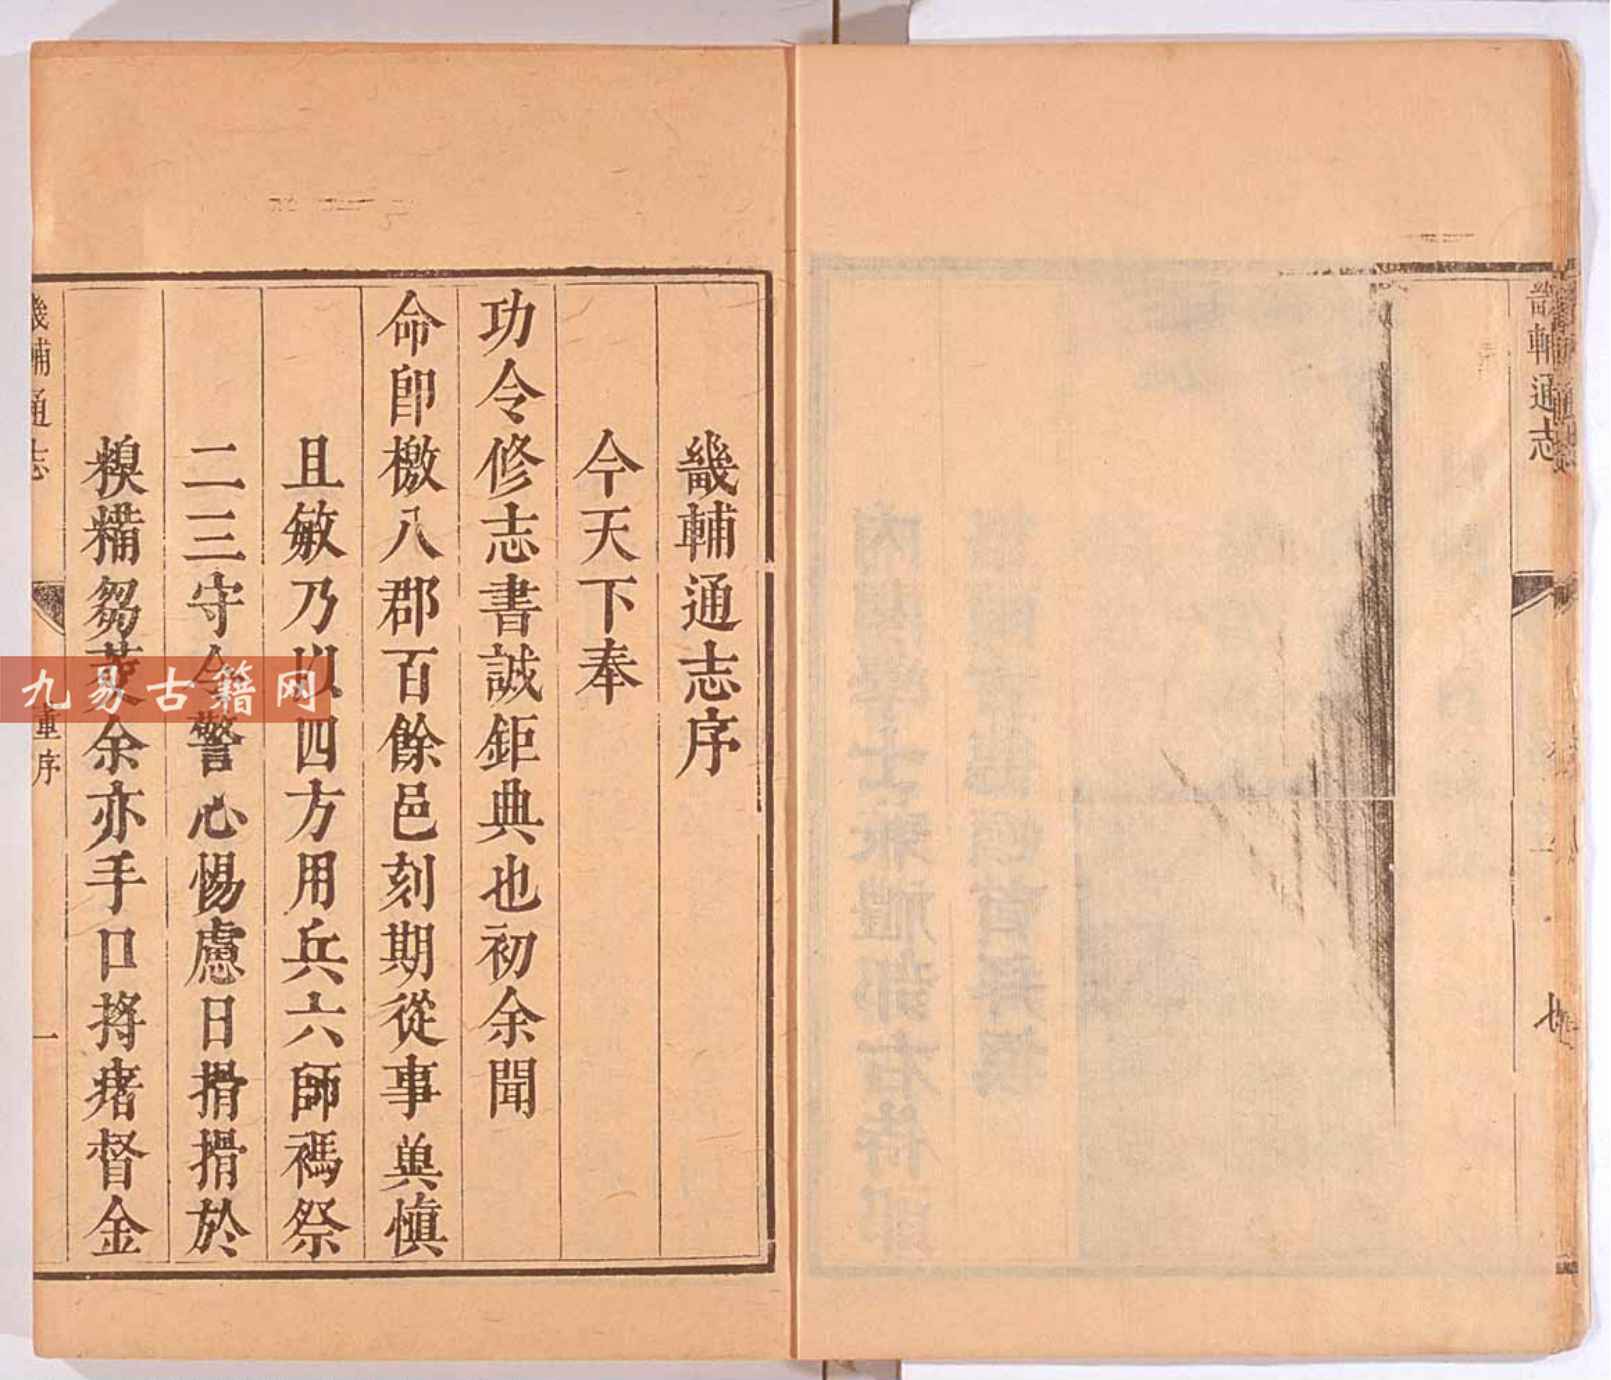 畿輔通志
畿輔通志序
今天下奉
功令修志書誠鉅典也初余聞
命卽檄八郡百餘邑刻期從事慎
且敏乃以四方用兵六師禡祭
二三守令警心惕慮日搰搰於
糗糒芻茭余亦手口捋瘏督金
畿輔通志
董序
一
九易古籍网